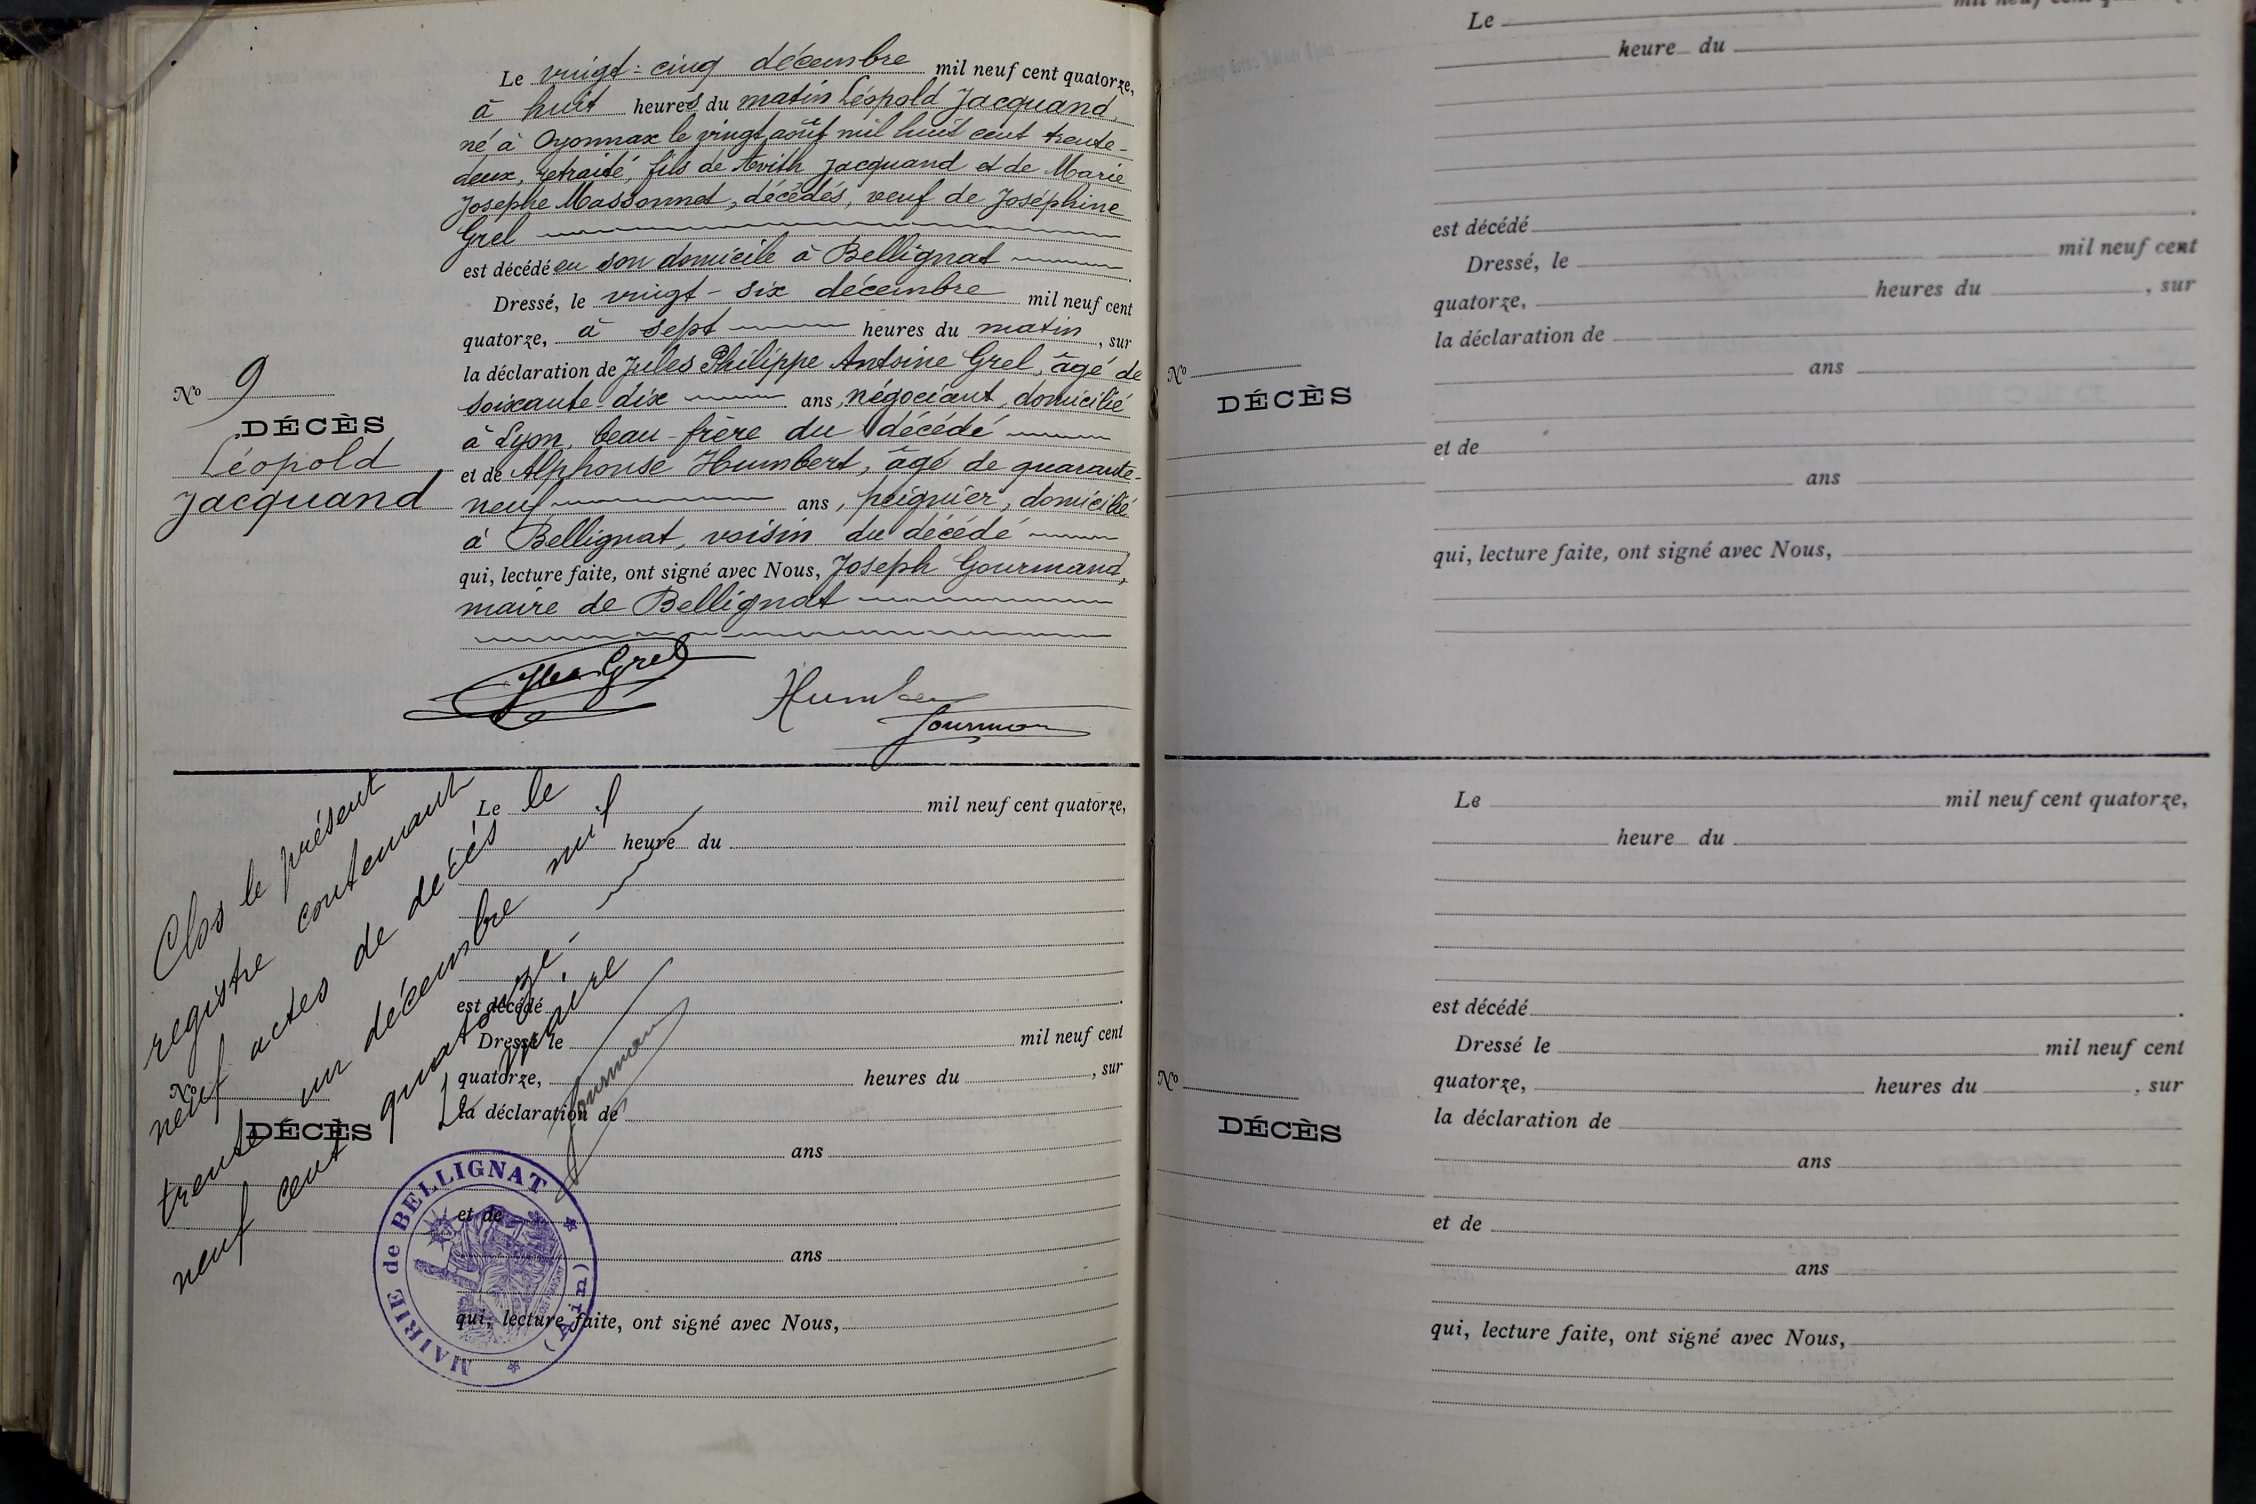 Le vingt-cinq décembre mil neuf cent quatorze,
à huit heures du matin Léopold Jacquand,
né à Oyonnax le vingt août mil huit cent trente-
deux, retraité, fils de Jacquand et de Marie
Josephe Massonnet, décédés, veuf de Joséphine
Grel
est décédé en son domicile à Bellignat
Dressé, le vingt-six décembre mil neuf cent
quatorze, à sept heures du matin, sur
la déclaration de Jules Philippe Antoine Grel, âgé de
soixante-dix ans, négociant, domicilié
à Lyon, beau-frère du décédé
et de Alphonse Humbert, âgé de quarante-
neuf ans, peignier, domicilié
à Bellignat, voisin du décédé
qui, lecture faite, ont signé avec Nous, Joseph Gourmand,
maire de Bellignat
Nº 9
DÉCÈS
Léopold
Jacquand
Grel
Humber
Clos le présent
registre contenant
neuf actes de décès le
trente un décembre mil
neuf cent quatorze.
Le maire
Le mil neuf cent quatorze,
heure du
est décédé
Dressé le mil neuf cent
quatorze, heures du , sur
la déclaration de
ans
et de
ans
qui, lecture faite, ont signé avec Nous,
Nº
DÉCÈS
MAIRIE de BELLIGNAT
(Ain)
Le
heure du
est décédé
Dressé, le mil neuf cent
quatorze, heures du , sur
la déclaration de
ans
et de
ans
qui, lecture faite, ont signé avec Nous,
Nº
DÉCÈS
Le mil neuf cent quatorze,
heure du
est décédé
Dressé le mil neuf cent
quatorze, heures du , sur
la déclaration de
ans
et de
ans
qui, lecture faite, ont signé avec Nous,
Nº
DÉCÈS